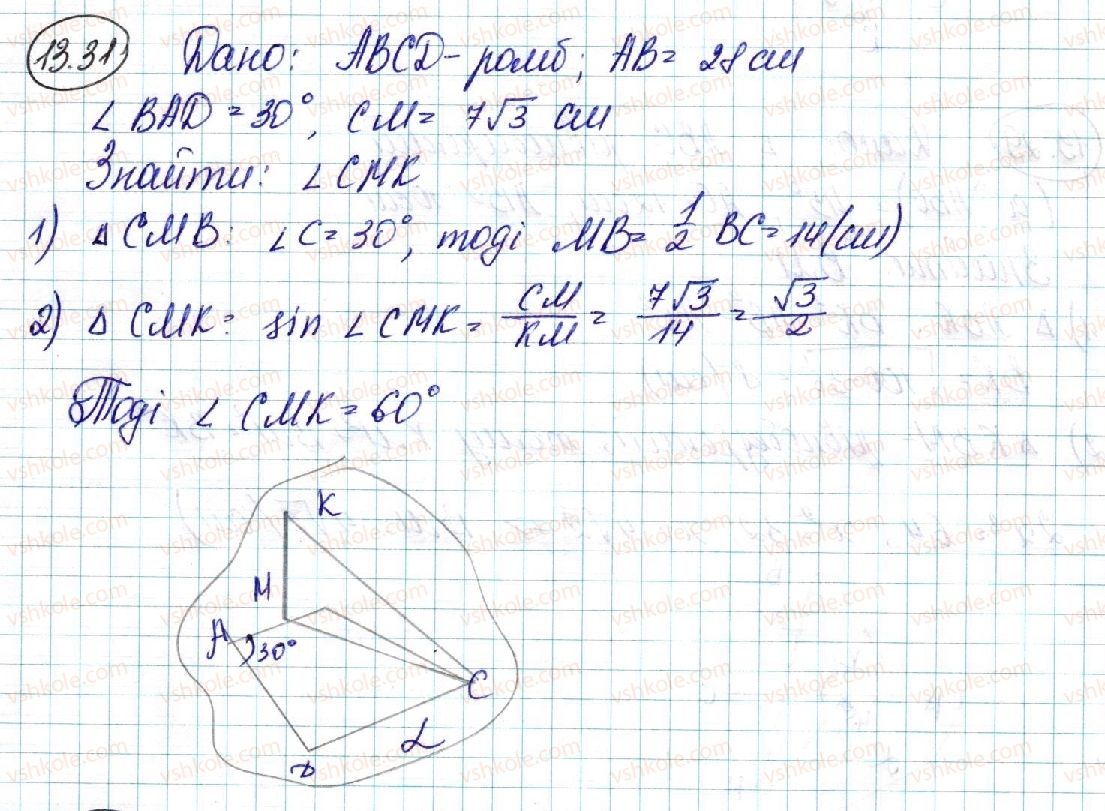 13.31) Дано: ABCD - ромб; AB = 28 см
∠ BAD = 30°, CM = 7√3 см
Знайти: ∠ CMK
1) △ CMB: ∠C = 30°, тоді MB = 1/2 BC = 14 (см)
2) △ CMK: sin ∠ CMK = CM/KM = 7√3/14 = √3/2
Тоді ∠ CMK = 60°
K
M
A
30°
C
D
α